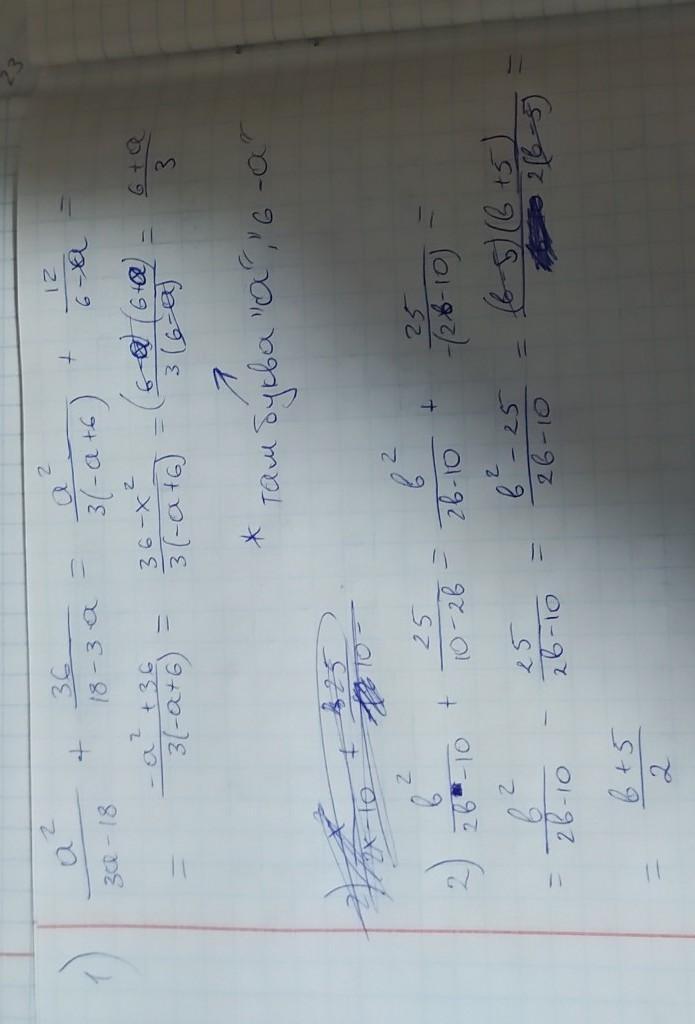 23
1) a²/(3a-18) + 36/(18-3a) = a²/(3(-a+6)) + 12/(6-a) =
= (-a²+36)/(3(-a+6)) = (36-x²)/(3(-a+6)) = ((6-a)(6+a))/(3(6-a)) = (6+a)/3
* там буква "а", "6-а"
2) b²/(2b-10) + 25/(10-2b) = b²/(2b-10) + 25/(-(2b-10)) =
= b²/(2b-10) - 25/(2b-10) = (b²-25)/(2b-10) = ((b-5)(b+5))/(2(b-5)) =
= (b+5)/2